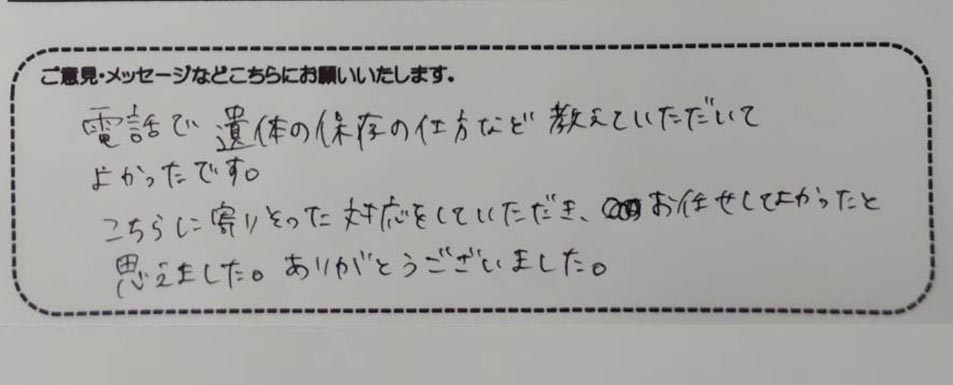 ご意見・メッセージなどこちらにお願いいたします。
電話で遺体の保存の仕方など教えていただいて
よかったです。
こちらに寄りそった対応をしていただき、お任せしてよかったと
思えました。ありがとうございました。